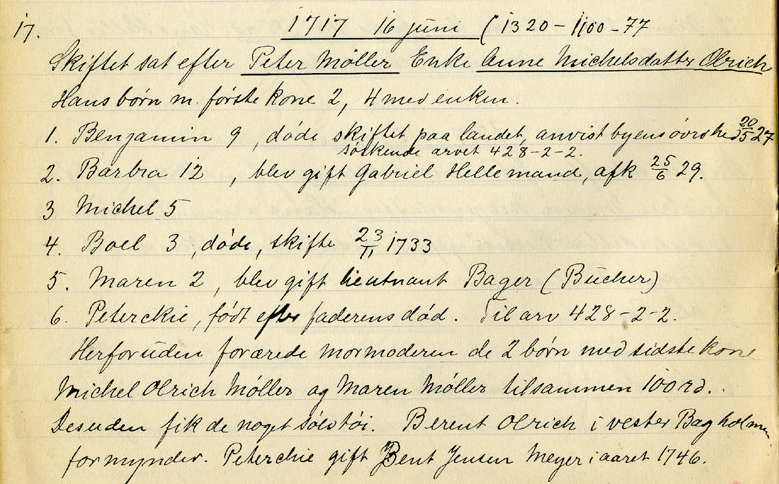 17. 1717 16 juni (1320-1100-77
Skiftet sat efter Peter Møller Enke Anne Michelsdatter Olrich
Hans børn m. første kone 2, 4 med enken.
1. Benjamin 9, døde skiftet paa landet, anvist byens øvrished 20/5 27
søskende arvet 428-2-2.
2. Barbra 12, blev gift Gabriel Hellemand, afk 25/6 29.
3 Michel 5
4. Boel 3, døde, skifte 23/11 1733
5. Maren 2, blev gift lieutnant Bager (Bücher)
6. Peterckie, født efter faderens død. Til arv 428-2-2.
Herforuden forærede mormoderen de 2 børn med sidste kone
Michel Olrich Møller og Maren Møller tilsammen 100 rd.
Desuden fik de noget sølvtøi. Berent Olrich i vester Bagholmen
formynder. Peterchie gift Bent Jensen Meyer i aaret 1746.